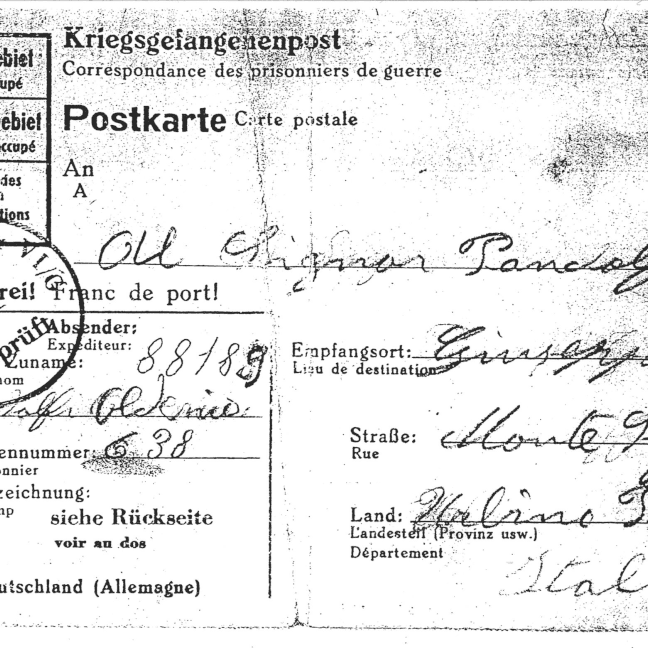 Kriegsgefangenenpost
Correspondance des prisonniers de guerre
Postkarte Carte postale
An
A
ebiet
upé
ebiet
ccupé
des
tions
Al Signor Pandol
rei! Franc de port!
prüft
Absender:
Expéditeur:
88189
Zuname:
nom
Empfangsort: Giusepp
Lieu de destination
ennummer: 638
onnier
Straße: Monte
Rue
zeichnung:
mp
siehe Rückseite
voir au dos
Land: Urbino
Landesteil (Provinz usw.)
Département
Ital
utschland (Allemagne)